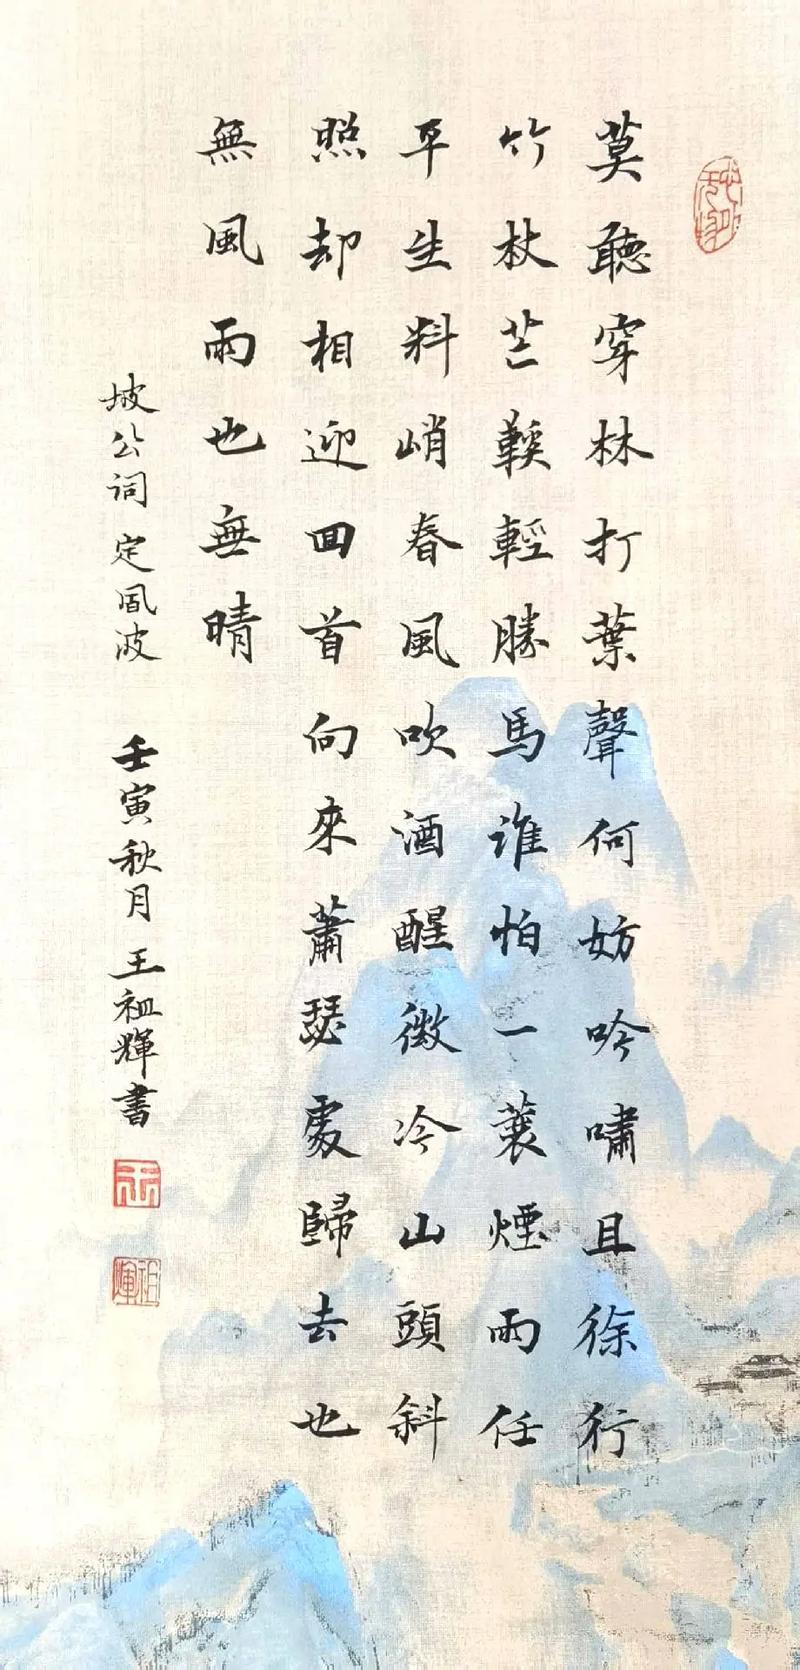 莫聽穿林打葉聲何妨吟嘯且徐行
竹杖芒鞵輕勝馬誰怕一蓑煙雨任
平生料峭春風吹酒醒微冷山頭斜
照却相迎回首向來蕭瑟處歸去也
無風雨也無晴
坡公詞定風波 壬寅秋月王祖輝書
王
祖輝